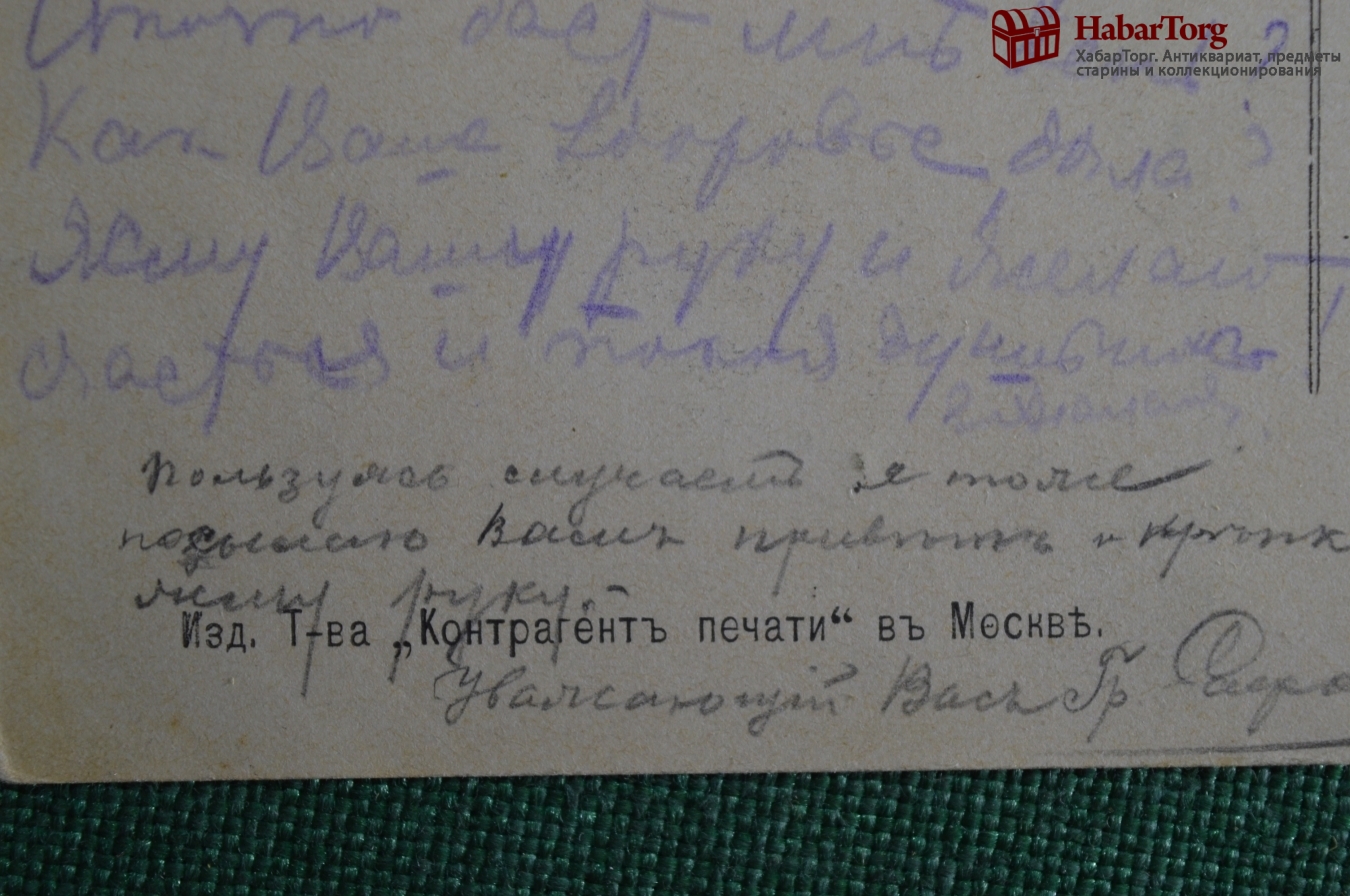 HabarTorg
ХабарТорг. Антиквариат, предметы
старины и коллекционирования
даст мнѣ
Как Ваше здоровье была?
Жму Вашу руку и желаю
счастья и покоя душевнаго
Пользуясь случаем я тоже
посылаю Вамъ привѣтъ и крѣпк
жму руку.
Изд. Т-ва „Контрагентъ печати“ въ Москвѣ.
Уважающій Васъ Гр.